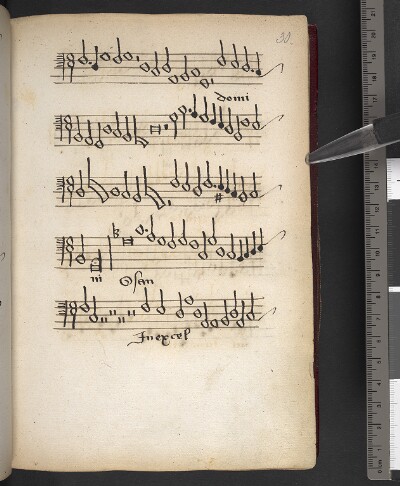 30
domi
ni Osan
Inexcel